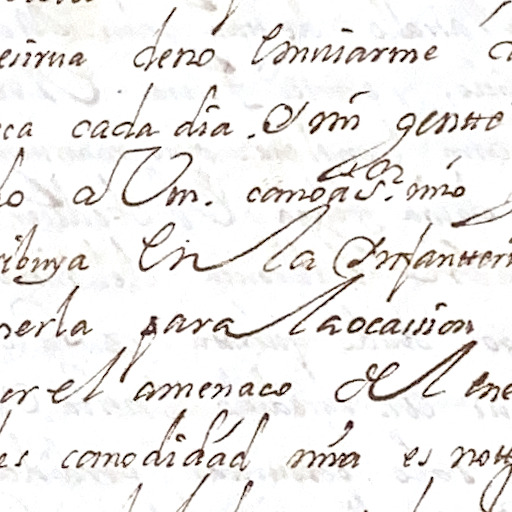 esirva deno Embiarme
ca cada dia. Y mi gentte
do a Vm. como a S.r mio
ribuya En la Ynfantteri
nerla para la ocassion
er el amenaço del ene
les comodidad mia es nott